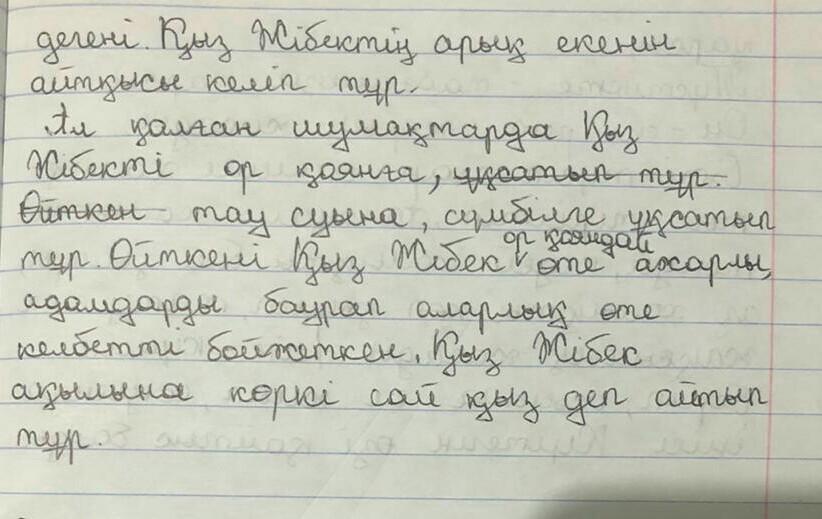 дегені. Қыз Жібектің арық екенін
айтқысы келіп тұр.
Ал қалған шумақтарда Қыз
Жібекті ор қоянға, ұқсатып тұр.
Өйткен тау суына, сүмбілге ұқсатып
ор қояндай
тұр. Өйткені Қыз Жібек өте ажарлы,
адамдарды баурап аларлық өте
келбетті бойжеткен. Қыз Жібек
ақылына көркі сай қыз деп айтып
тұр.